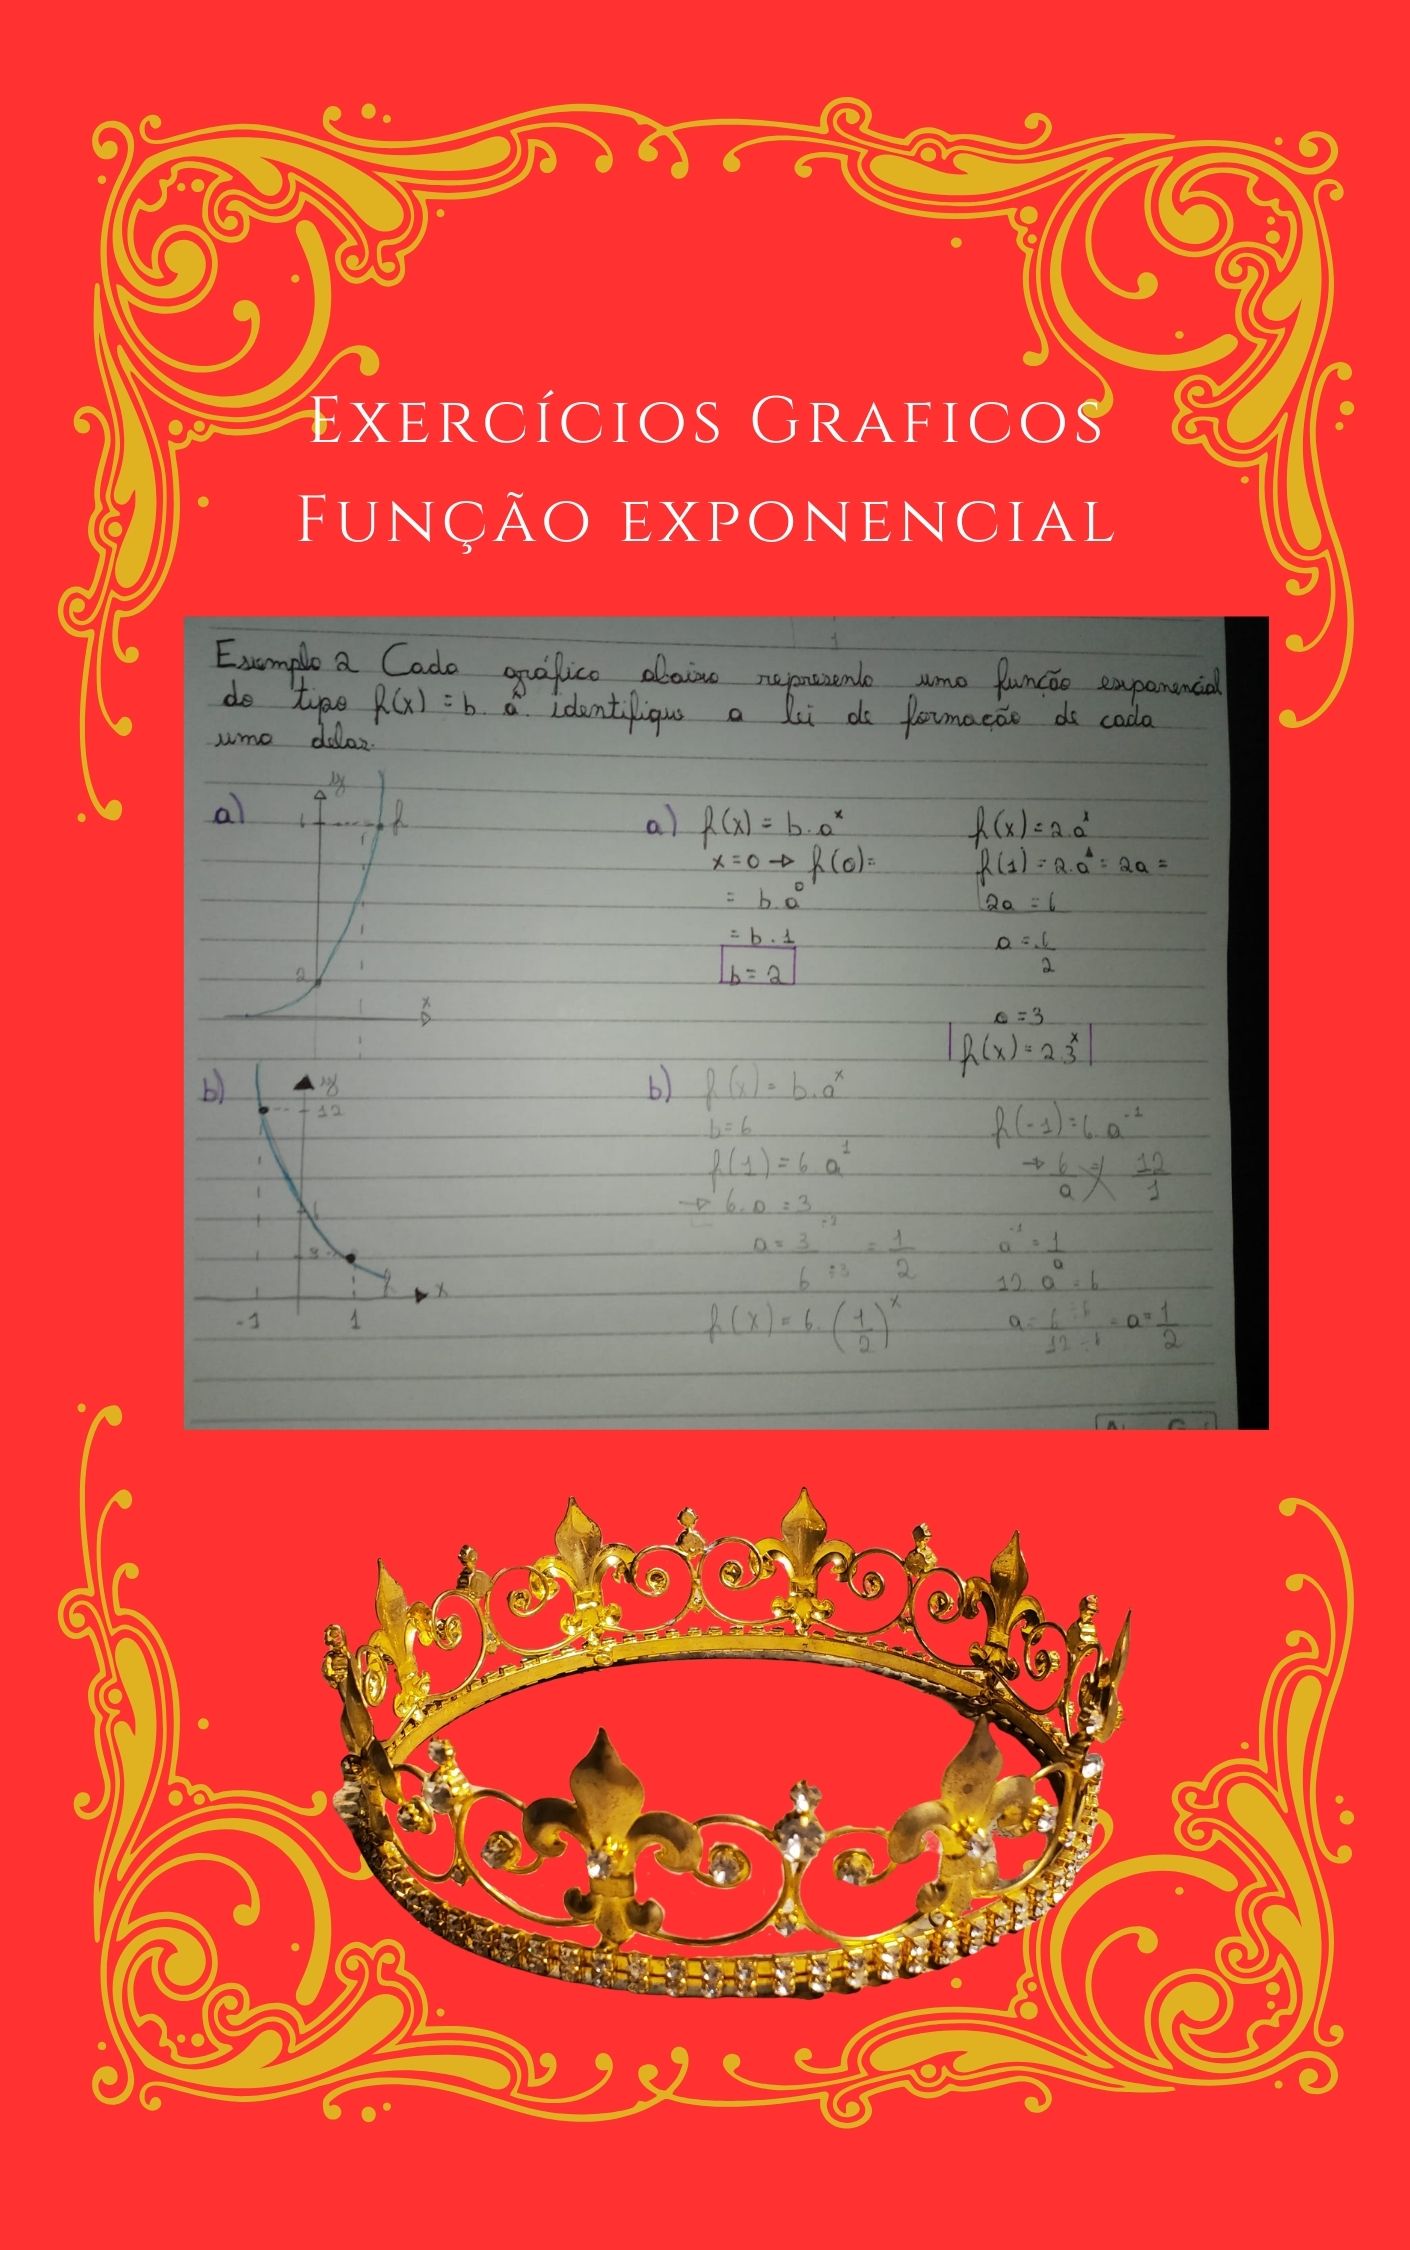 Exercícios Graficos
Função exponencial
Exemplo 2 Cada gráfico abaixo representa uma função exponencial
do tipo f(x) = b. aˣ. identifique a lei de formação de cada
uma delas.
a)
y
6
f
2
x
a) f(x) = b.aˣ
x=0 → f(0)=
= b.a⁰
= b.1
b= 2
f(x)=2.aˣ
f(1)=2.a¹=2a=
2a = 6
a = 6/2
a =3
f(x)=2.3ˣ
b)
y
12
6
3
f
x
-1 1
b) f(x)= b.aˣ
b=6
f(1)=6.a¹
→ 6.a =3
a= 3/6 ÷3/÷3 = 1/2
f(x)=6.(1/2)ˣ
f(-1)=6.a⁻¹
→ 6/a = 12/1
a⁻¹=1/a
12.a=6
a= 6/12 ÷6/÷6 = a=1/2